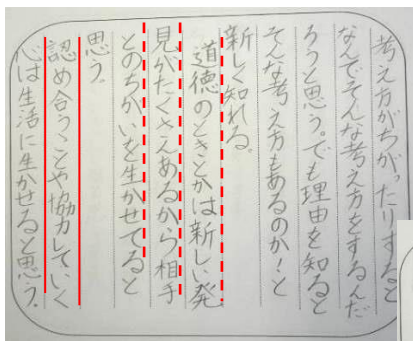 考え方がちがったりすると
なんでそんな考え方をするんだ
ろうと思う。でも理由を知ると
そんな考え方もあるのか!と
新しく知れる。
道徳のときとかは新しい発
見がたくさんあるから相手
とのちがいを生かせてると
思う。
認め合うことや協力していく
心は生活に生かせると思う。